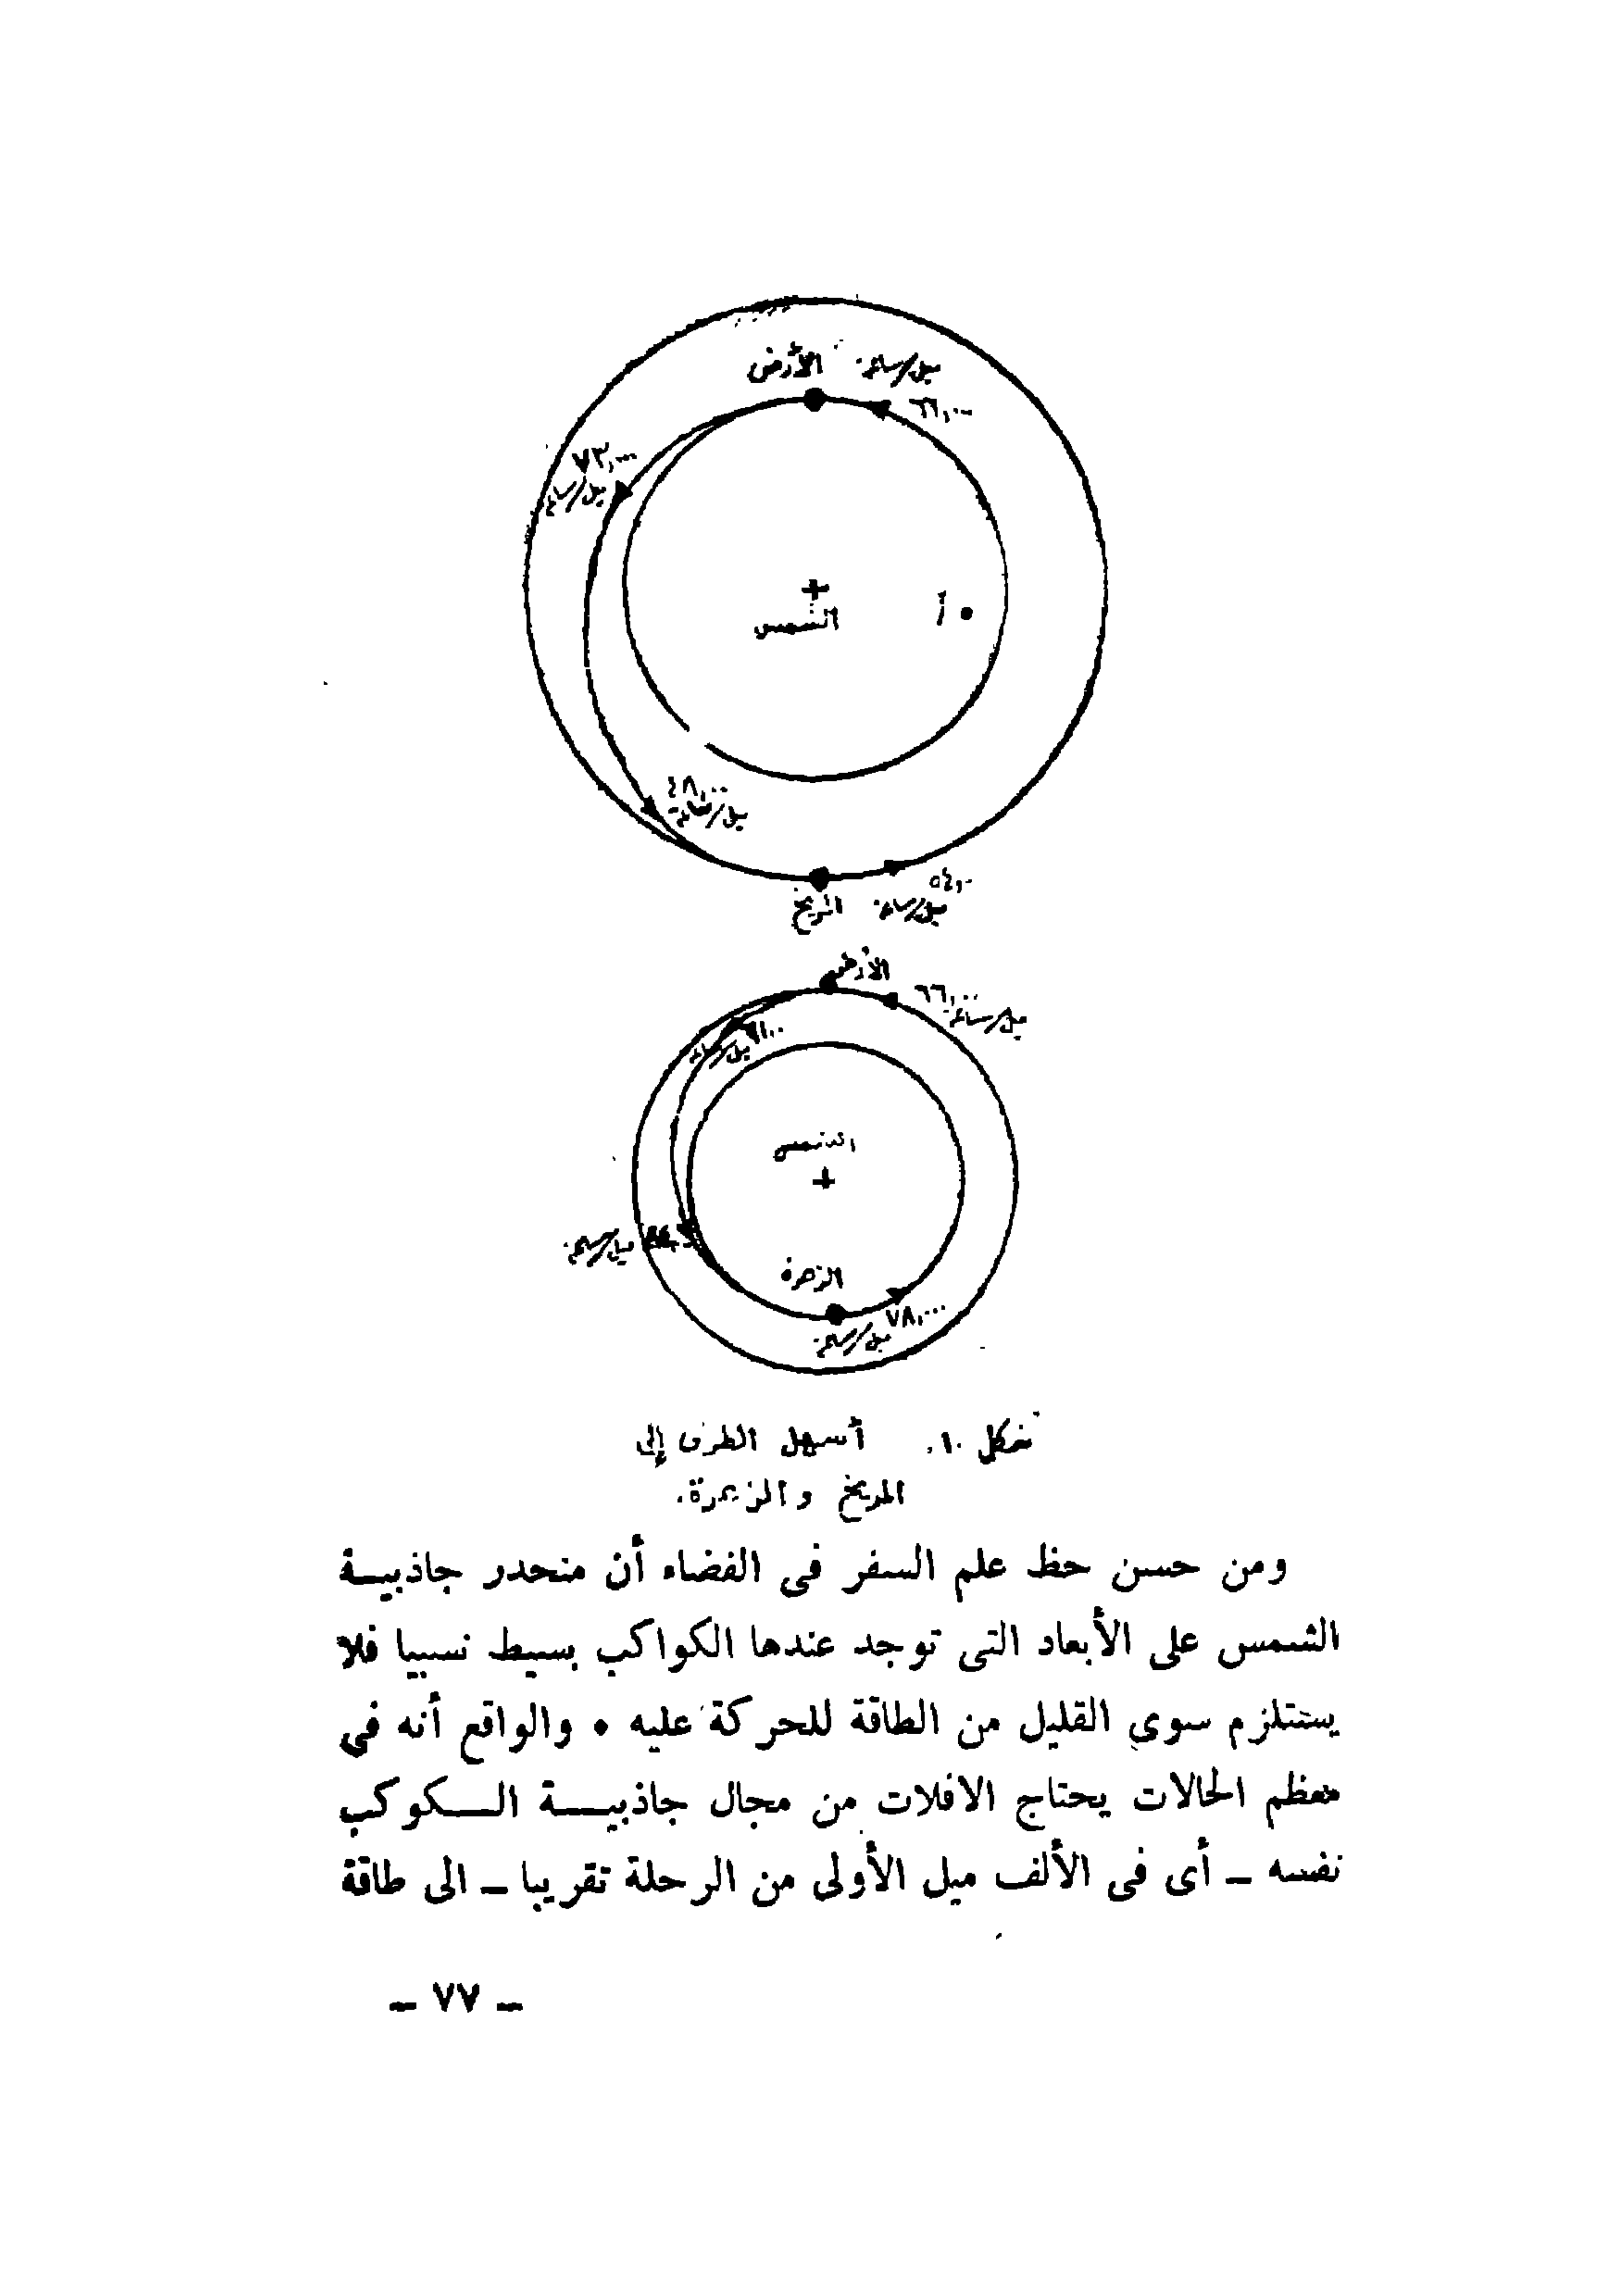 الأرض ميل/ساعة
٦٦,٠٠٠
٧٣,٠٠٠
ميل/ساعة
الشمس
أ
٤٨,٠٠٠
ميل/ساعة
٥٤,٠٠٠
المريخ ميل/ساعة
الأرض
٦٦,٠٠٠
ميل/ساعة
ميل/ساعة
الشمس
ميل/ساعة
الزهرة
٧٨,٠٠٠
ميل/ساعة
شكل ١٠. أسهل الطرق إلى
المريخ والزهرة.
ومن حسن حظ علم السفر فى الفضاء أن منحدر جاذبيـة
الشمس على الأبعاد التى توجد عندها الكواكب بسيط نسبيا فلا
يستلزم سوى القليل من الطاقة للحركة عليه • والواقع أنه فى
معظم الحالات يحتاج الافلات من مجال جاذبيـــة الـــكوكب
نفسه ـ أى فى الألف ميل الأولى من الرحلة تقريبا ـ الى طاقة
ـ ٧٧ ـ